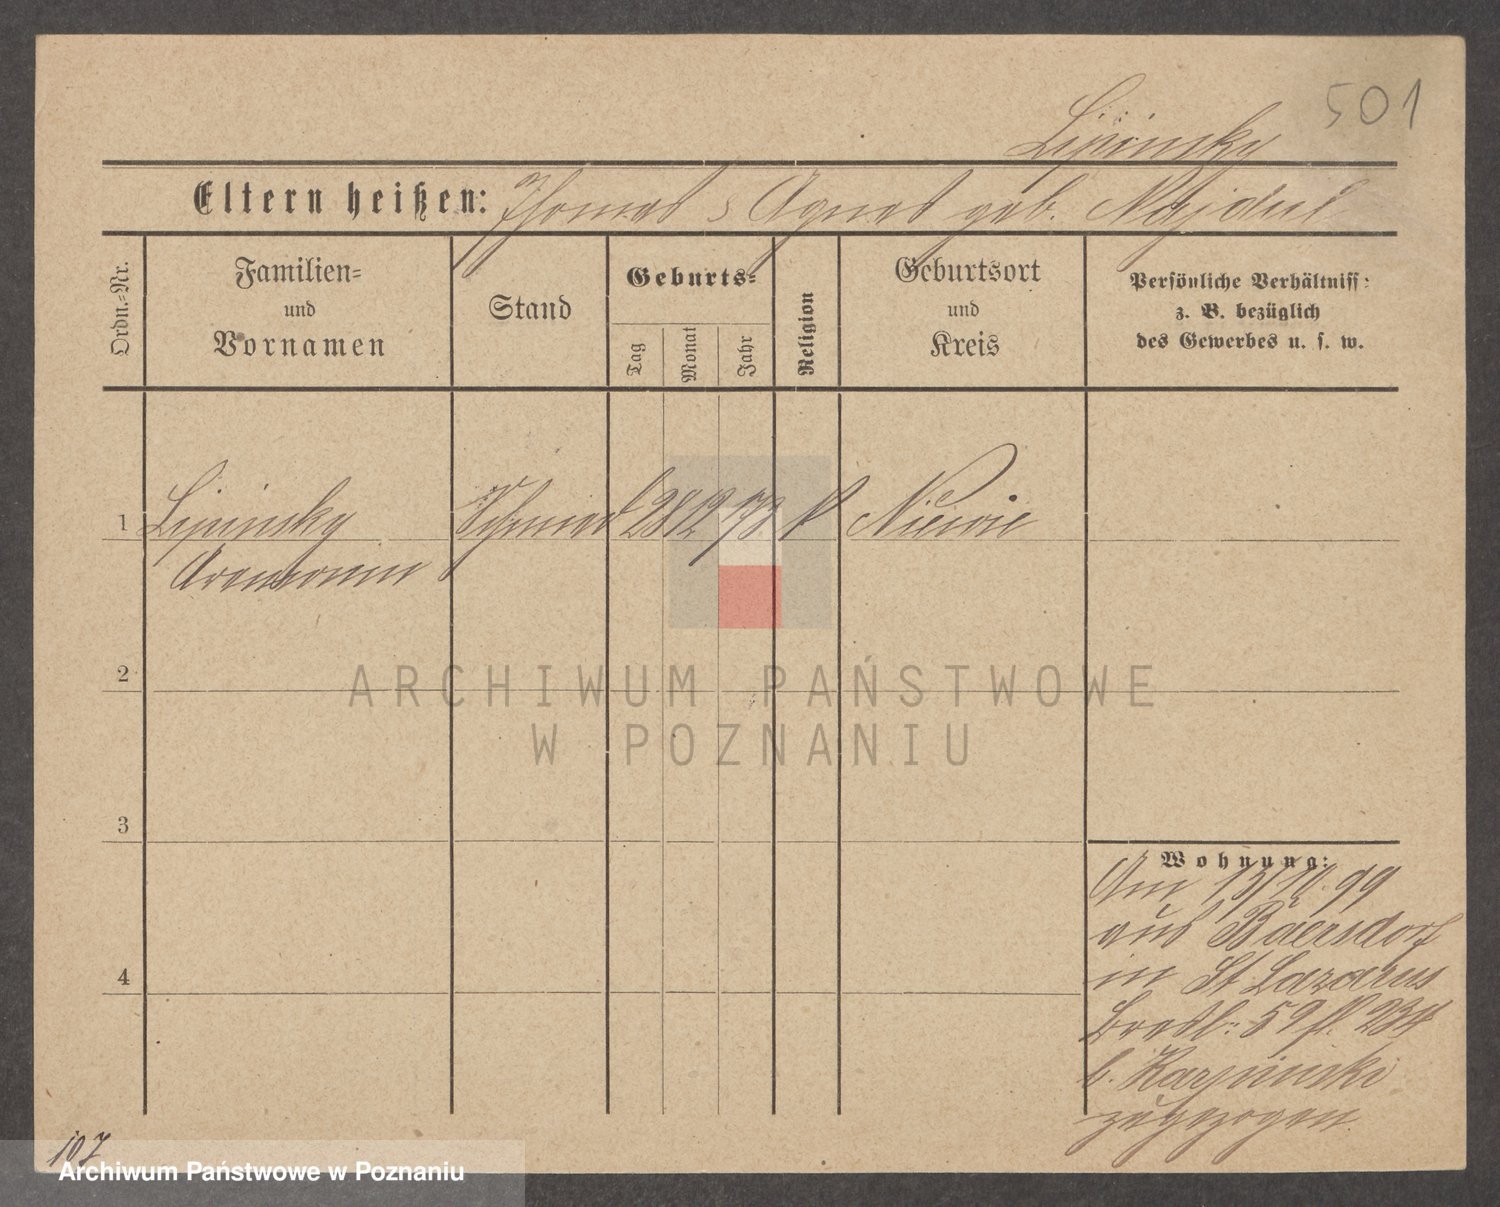 501
Lipinsky
Eltern heißen: Thomas & Agnes geb. Majdul
Ordn.-Nr.
Familien-
und
Vornamen
Stand
Geburts-
Tag
Monat
Jahr
Religion
Geburtsort
und
Kreis
Persönliche Verhältniss:
z. B. bezüglich
des Gewerbes u. s. w.
1 Lipinsky Schmied 28 12 73. k
2
ARCHIWUM PAŃSTWOWE
W POZNANIU
3
Wohnung:
Am 13/10. 99
aus Baersdorf
in St Lazarus
4
Bresl: 59
b. Karpinski
zugezogen.
107
Archiwum Państwowe w Poznaniu